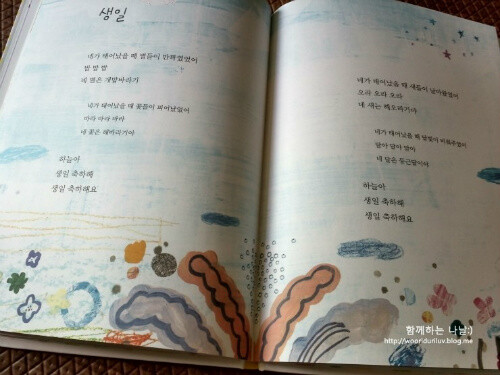 생일
네가 태어났을 때 별들이 반짝였었어
별 별 별
네 별은 개밥바라기
네가 태어났을 때 꽃들이 피어났었어
네 꽃은 해바라기야
하늘아
생일 축하해
생일 축하해요
네가 태어났을 때 새들이 날아올랐어
네가 태어났을 때 달빛이 비춰주었어
달아 달아 달아
네 달은 둥근달이야
하늘아
생일 축하해
생일 축하해요
함께하는 나날:)
http://wooriduriluv.blog.me